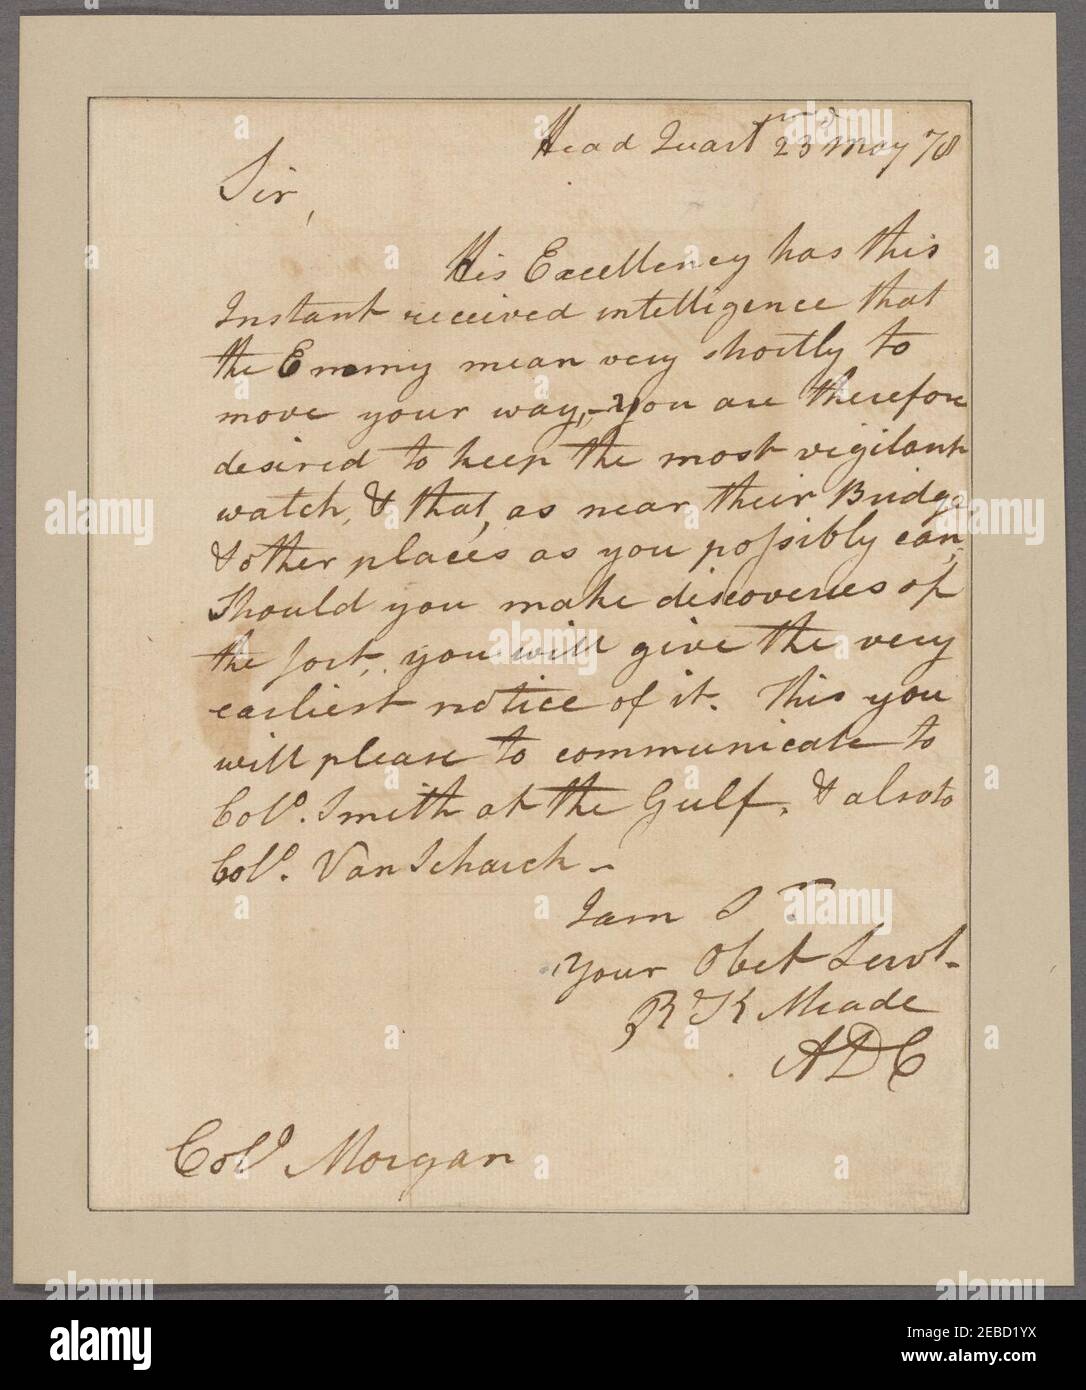 Head Quartrs 23d May 78
Sir,
His Excellency has this
Instant received intelligence that
the Enemy mean very shortly to
move your way,—You are therefore
desired to keep the most vigilant
watch, & that, as near their Bridge,
& other places as you possibly can,
Should you make discoveries of
the sort, you will give the very
earliest notice of it. This you
will please to communicate to
Colo. Smith at the Gulf, & also to
Colo. Van Schaick —
I am Sr
Your Obet Servt.
R K Meade
ADC
Colo Morgan
alamy
Image ID: 2EBD1YX
www.alamy.com